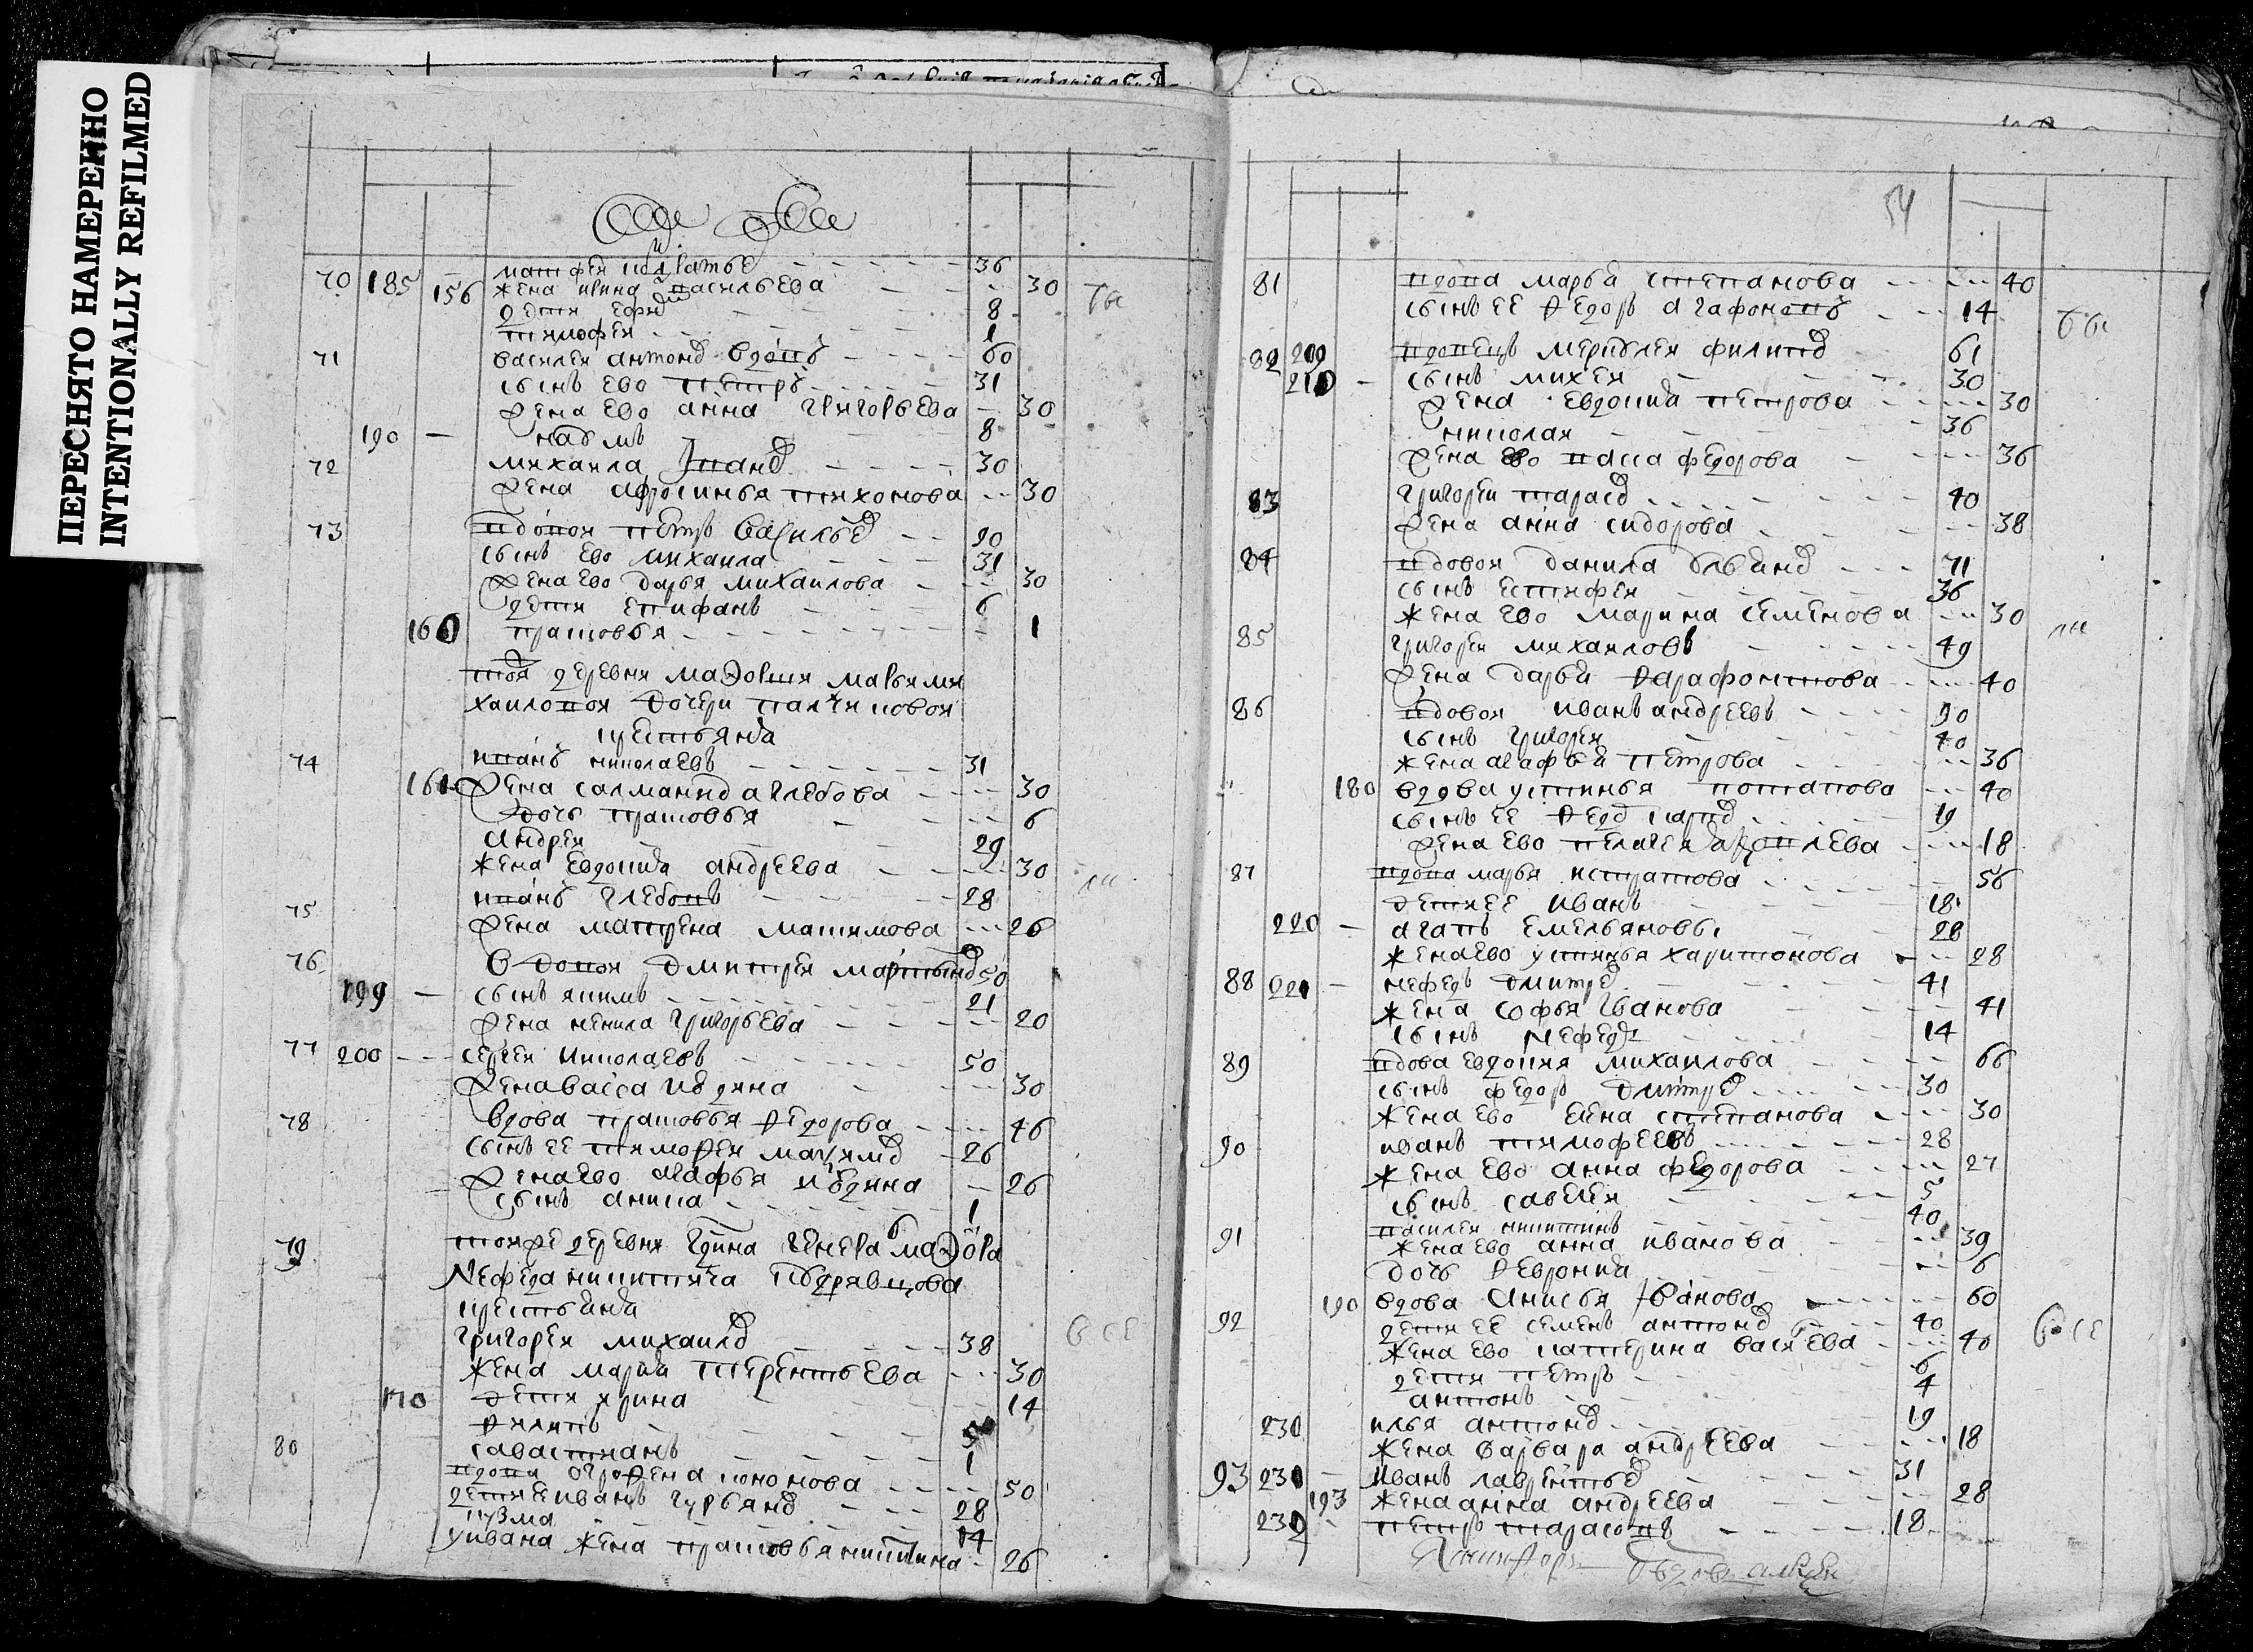 ПЕРЕСНЯТО НАМЕРЕННО
INTENTIONALLY REFILMED
70 185 156
36
жена васильева 30
дети 8
тимофей 1
бы
71 василей антонов вдовъ 60
сынъ ево петръ 31
жена ево анна григорьева 30
190 — 8
72 михаила иванов 30
жена афросинья тихонова 30
73 вдовой петръ васильев 90
сынъ ево михаила 31
жена ево дарья михаилова 30
дети епифанъ 6
160 прасковья 1
деревни маиорши марьи ми
хаиловой дочери
крестьяня
74 иванъ николаевъ 31
161 жена саламанида глебова 30
дочь прасковья 6
андреи 29
жена евдокия андреева 30
ли
75 иванъ глебовъ 28
жена матрена максимова 26
76 вдовой дмитрей мартынов 50
199 — сынъ якимъ 21
жена ненила григорьева 20
77 200 — сергеи николаевъ 50
жена васса 30
78 вдова прасковья федорова 46
сынъ ее тимофеи максимов 26
жена ево агафья 26
сынъ аника 1
79 тои же деревни гдина генерала маиора
нефеда никитича кудрявцова
крестьяня
григореи михаилов 38
все
жена марья терентьева 30
170 дети ирина 14
филипъ 5
савастиянъ 1
80 вдова огрофена кононова 50
дети ее иванъ гурьянов 28
кузма 14
у ивана жена прасковья никитина 26
54
81 вдова марья степанова 40
сынъ ее федоръ агафоновъ 14
бы
82 209 вдовецъ филипов 61
210 — сынъ михеи 30
жена евдокия петрова 30
николаи 36
жена ево васса федорова 36
83 григореи тарасов 40
жена анна сидорова 38
84 вдовои данила 71
сынъ естифеи 36
жена ево марина семенова 30
ли
85 григореи михаиловъ 49
жена дарья 40
86 вдовои иванъ андреевъ 90
сынъ григореи 40
жена агафья петрова 36
180 вдова устинья потапова 40
сынъ ее федор карпов 19
жена ево пелагея 18
87 вдова марья истратова 56
дети ее иванъ 18
220 — агапъ емельяновы 28
жена ево устинья харитонова 28
88 221 — нефедъ дмитрев 41
жена софья иванова 41
сынъ нефедъ 14
89 вдова евдокия михаилова 66
сынъ федоръ дмитрев 30
жена ево елена степанова 30
90 иванъ тимофеевъ 28
жена ево анна федорова 27
сынъ савелеи 5
91 василеи никитинъ 40
жена ево анна иванова 39
дочь феврония 6
92 190 вдова анисья иванова 60
дети ее семенъ антонов 40
все
жена ево катерина 40
дети петръ 6
антонъ 4
230 илья антонов 19
жена варвара андреева 18
93 230 — иванъ лаврентьев 31
193 жена анна андреева 28
239 — петръ тарасовъ 18